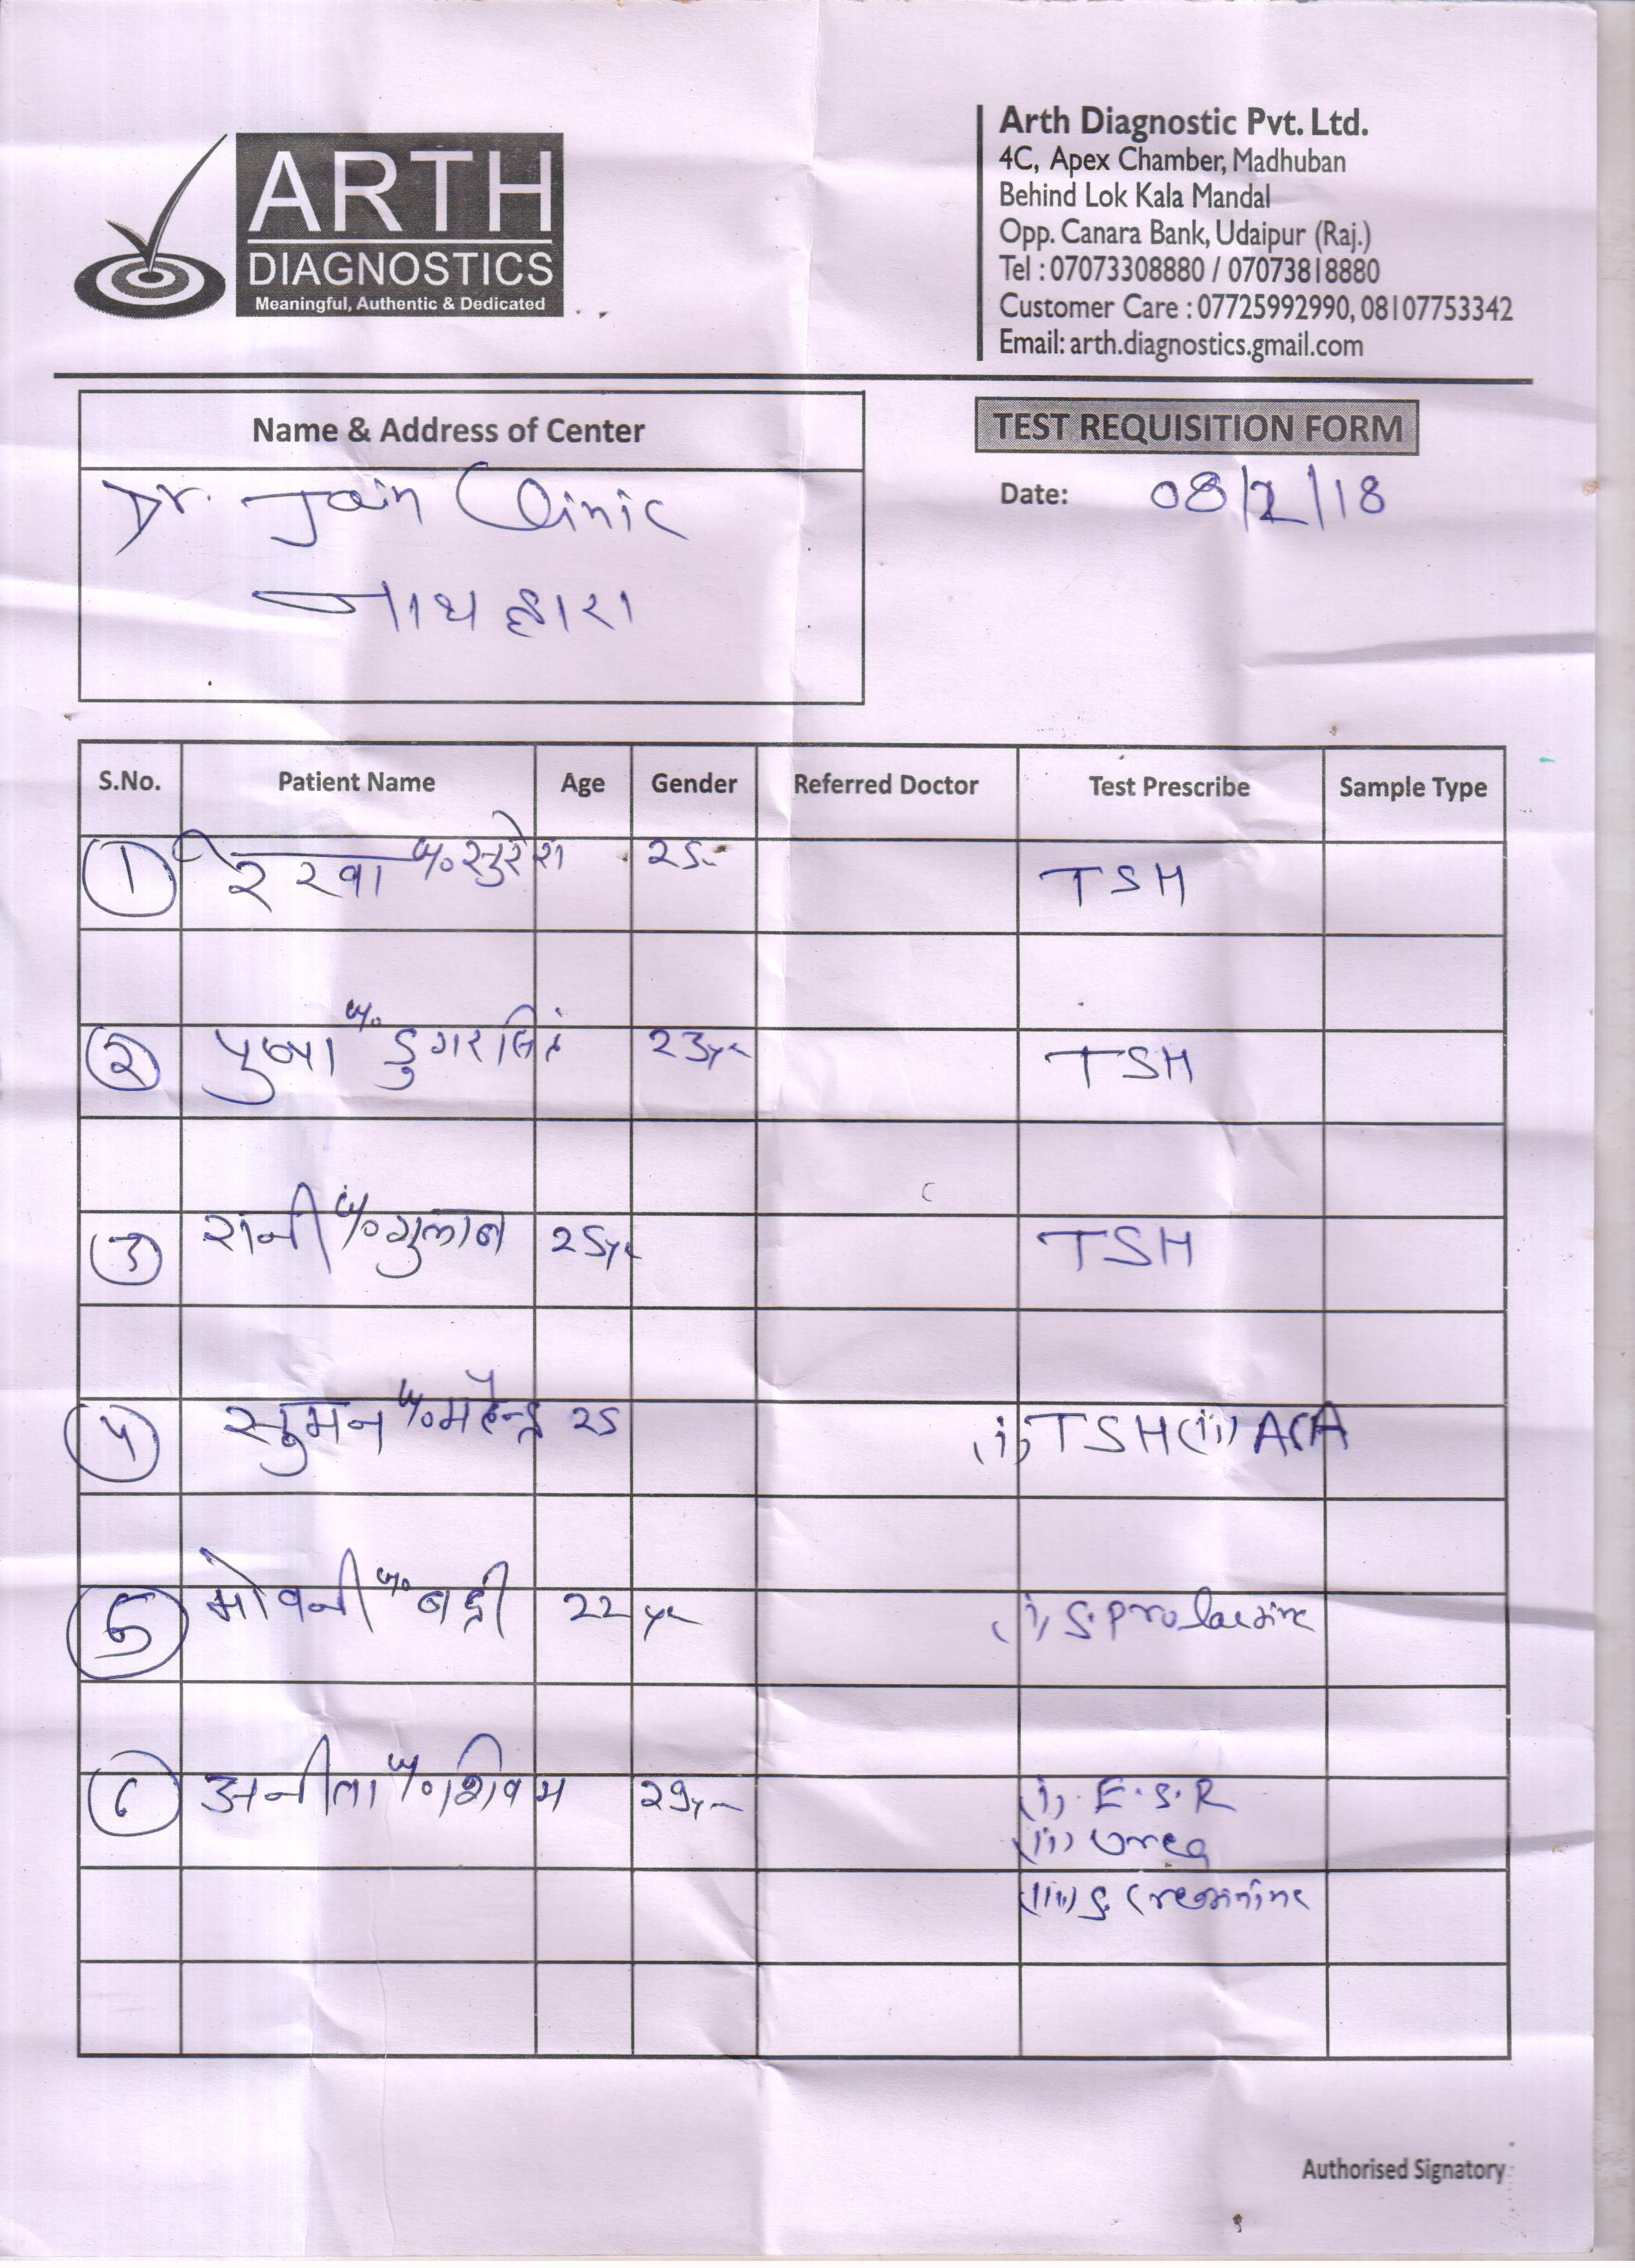 ARTH
DIAGNOSTICS
Meaningful, Authentic & Dedicated
Arth Diagnostic Pvt. Ltd.
4C, Apex Chamber, Madhuban
Behind Lok Kala Mandal
Opp. Canara Bank, Udaipur (Raj.)
Tel : 07073308880 / 07073818880
Customer Care : 07725992990, 08107753342
Email: arth.diagnostics.gmail.com
Name & Address of Center
Dr. Jain Clinic
नाथद्वारा
TEST REQUISITION FORM
Date: 08/2/18
S.No. Patient Name Age Gender Referred Doctor Test Prescribe Sample Type
1 रेखा w/o सुरेश 25 TSH
2 पुजा w/o डुगरसिहं 23yr TSH
3 रानी w/o गुलाब 25yr TSH
4 सुमन w/o महेन्द्र 25 (i) TSH (ii)
5 w/o बद्री 22 yr (i) S. prolactine
6 अनीता w/o शिवम 29yr (i). E.S.R
(ii) Urea
(iii) S. Creatinine
Authorised Signatory